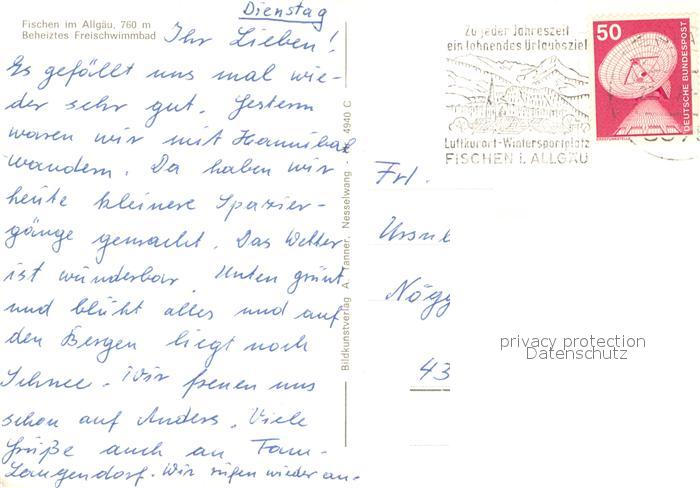 Dienstag
Fischen im Allgäu, 760 m
Beheiztes Freischwimmbad
Ihr Lieben!
Es gefällt uns mal wie-
der sehr gut. Gestern
waren wir mit Hannibal
wandern. Da haben wir
heute kleinere Spazier-
gänge gemacht. Das Wetter
ist wunderbar. Unten grünt
und blüht alles und auf
den Bergen liegt noch
Schnee. Wir freuen uns
schon auf Anders. Viele
Grüße auch an Fam.
Langendorf. Wir rufen wieder an.
Bildkunstverlag A. Tanner, Nesselwang 4940 C
Zu jeder Jahreszeit
ein lohnendes Urlaubsziel
Luftkurort-Wintersportplatz
FISCHEN i. ALLGÄU
50
DEUTSCHE BUNDESPOST
Frl.
Nögg
43
privacy protection
Datenschutz